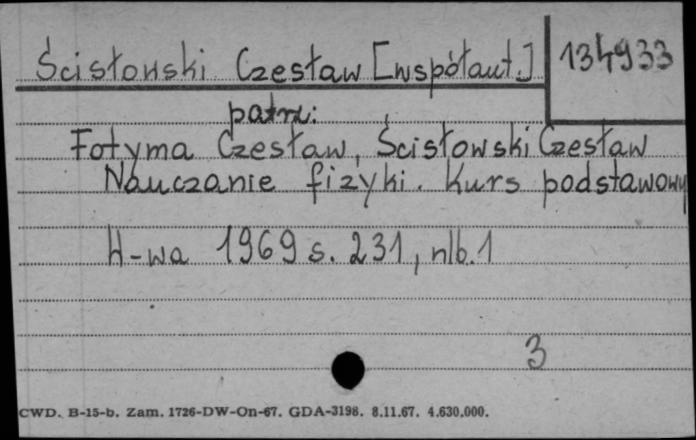 Ścisłowski Czesław [współaut.]
134933
patrz:
Fotyma Czesław, Ścisłowski Czesław
Nauczanie fizyki. Kurs podstawowy
W-wa 1969 s. 231, nlb. 1
3
CWD. B-15-b. Zam. 1726-DW-On-67. GDA-3198. 8.11.67. 4.630.000.